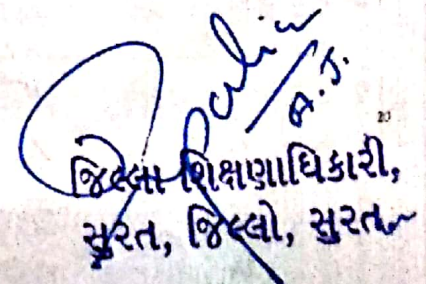 A. J.
જિલ્લા શિક્ષણાધિકારી,
સુરત, જિલ્લો, સુરત.